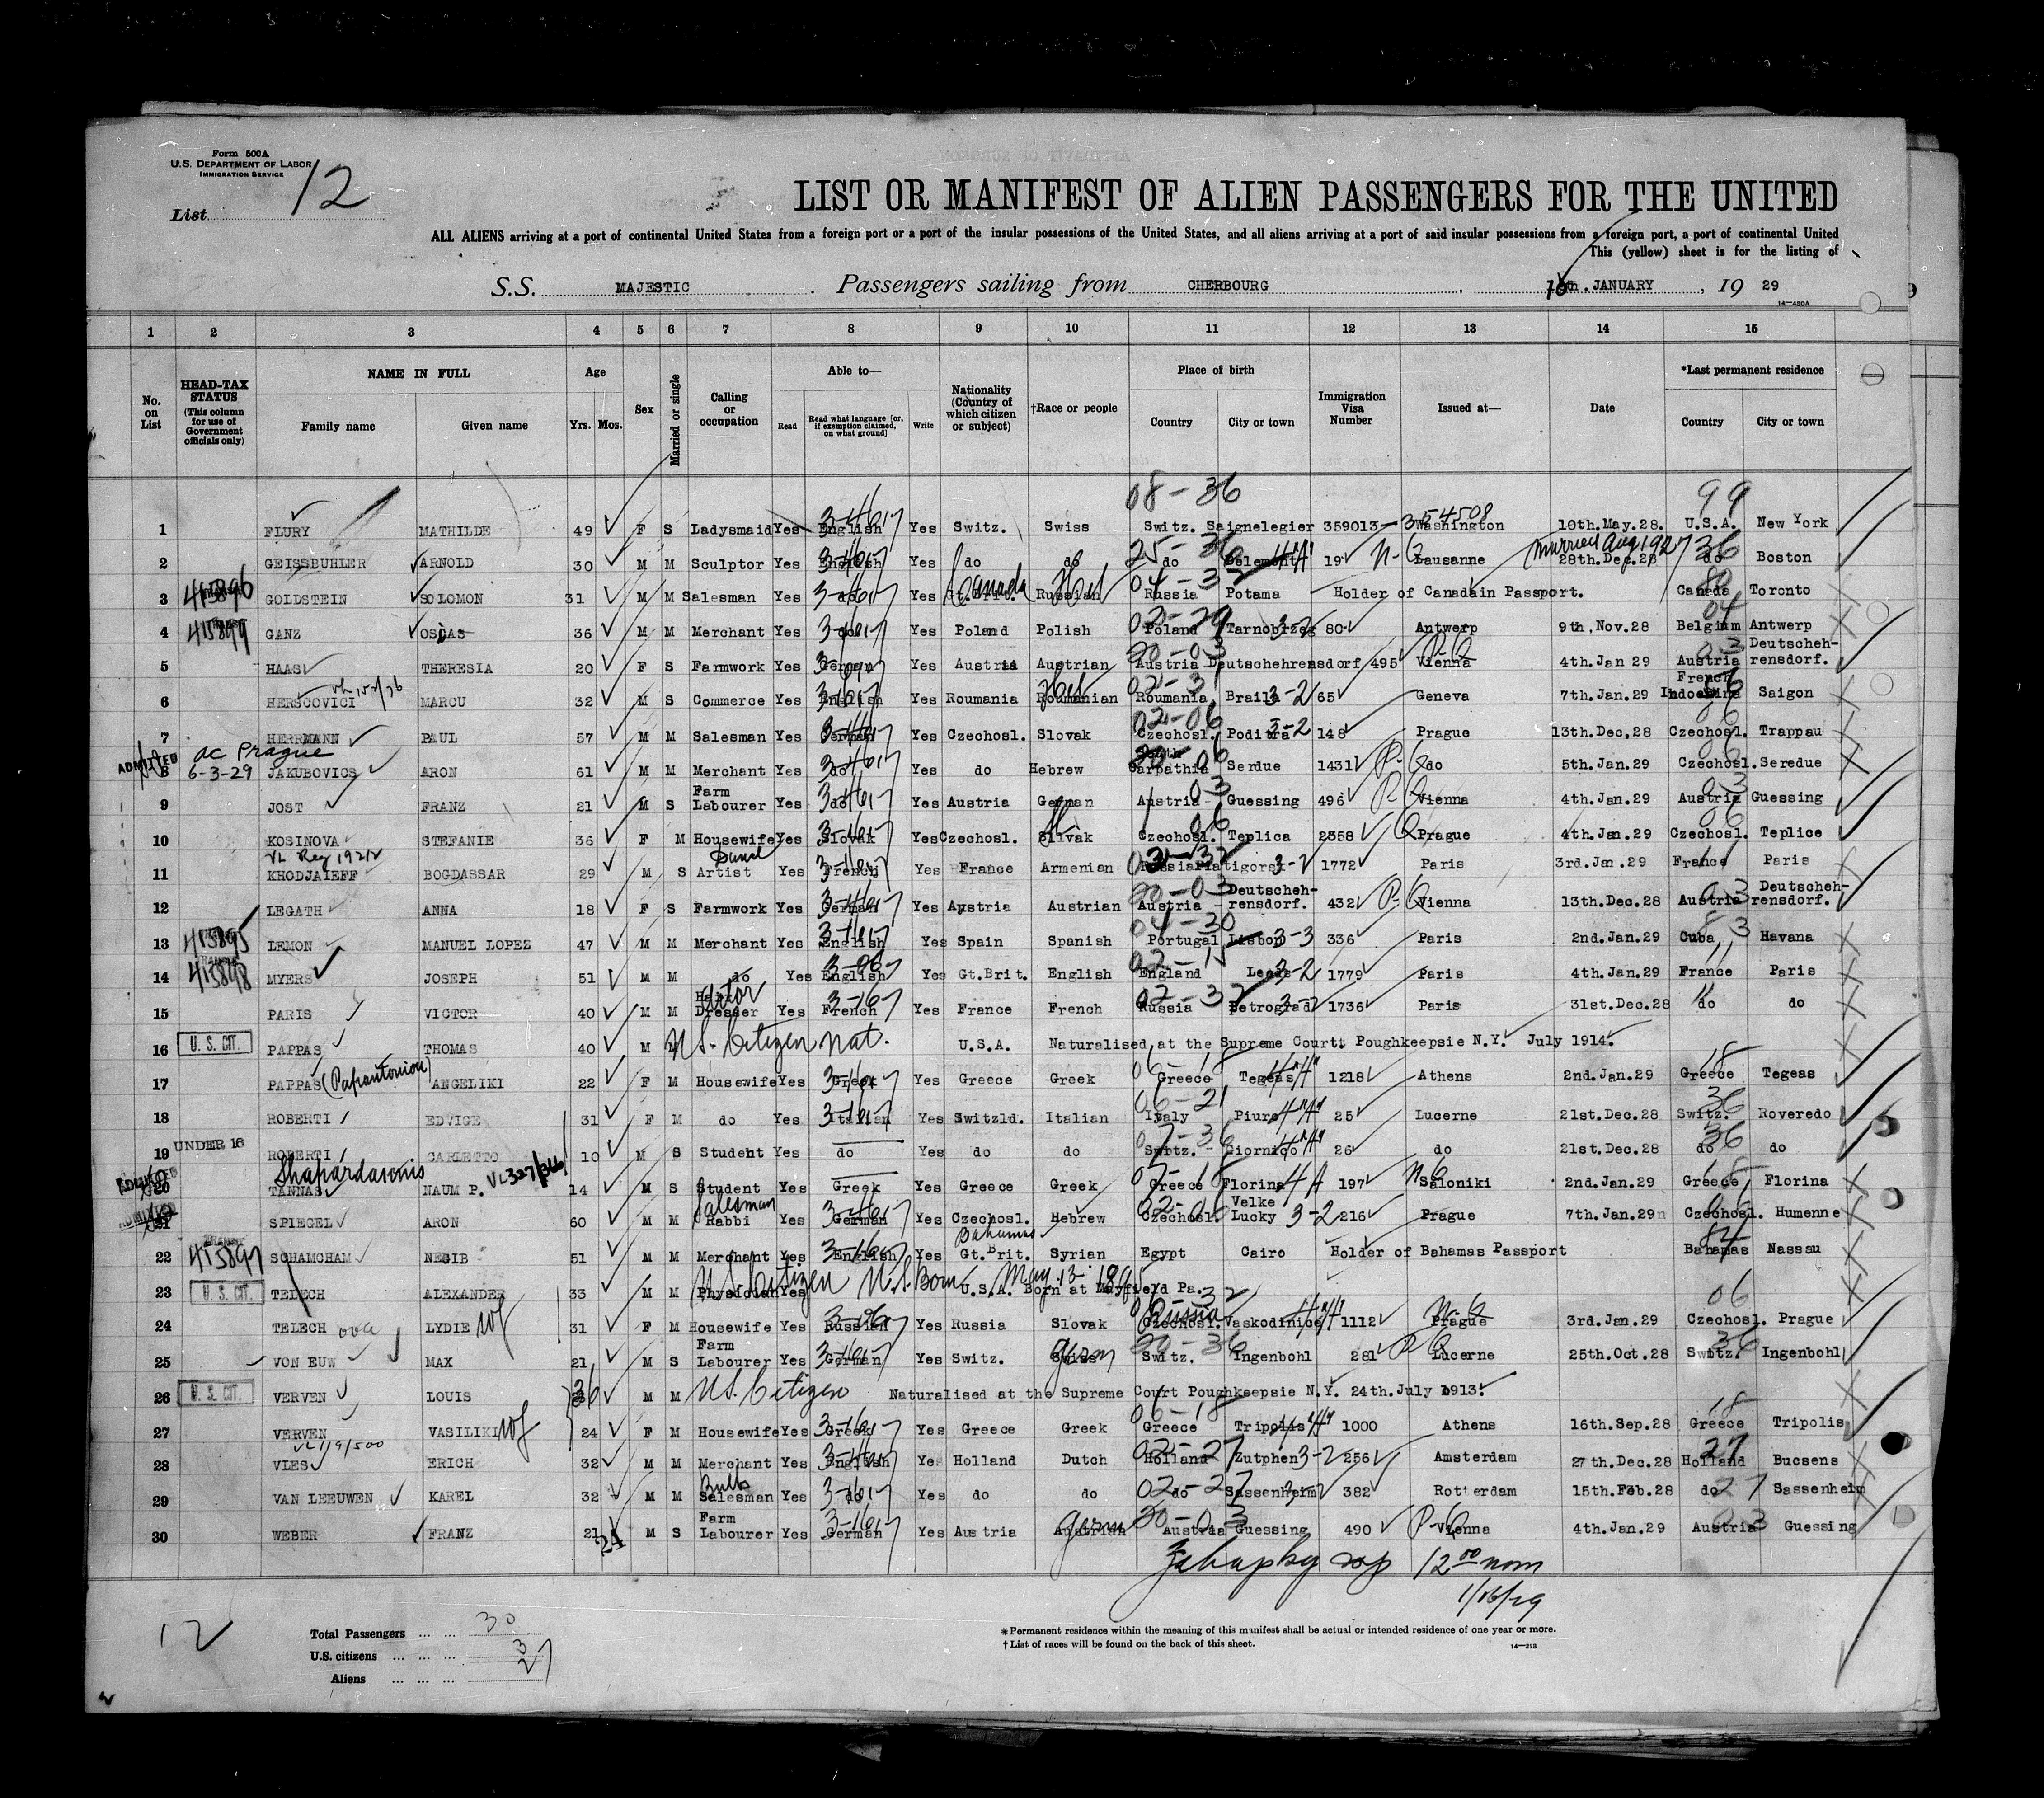 Form 500A
U.S. DEPARTMENT OF LABOR
IMMIGRATION SERVICE
List 12
LIST OR MANIFEST OF ALIEN PASSENGERS FOR THE UNITED
ALL ALIENS arriving at a port of continental United States from a foreign port or a port of the insular possessions of the United States, and all aliens arriving at a port of said insular possessions from a foreign port, a port of continental United
This (yellow) sheet is for the listing of
S.S. MAJESTIC Passengers sailing from CHERBOURG, JANUARY, 19 29
14-420A
1 2 3 4 5 6 7 8 9 10 11 12 13 14 15
No. on List
HEAD-TAX STATUS (This column for use of Government officials only)
NAME IN FULL Family name Given name
Age Yrs. Mos.
Sex
Married or single
Calling or occupation
Able to— Read Read what language [or, if exemption claimed, on what ground] Write
Nationality (Country of which citizen or subject)
†Race or people
Place of birth Country City or town
Immigration Visa Number
Issued at—
Date
*Last permanent residence Country City or town
08-36 99
1 FLURY MATHILDE 49 F S Ladysmaid Yes English Yes Switz. Swiss Switz. Saignelegier 359013 Washington 10th.May.28. U.S.A. New York
married Aug 1927
2 GEISSBUHLER ARNOLD 30 M M Sculptor Yes English Yes do do do Delemont 19 Lausanne 28th.Dec.28 do Boston
3 415896 GOLDSTEIN SOLOMON 31 M M Salesman Yes do Yes Canada Russian Russia Potama Holder of Canadain Passport. Canada Toronto
4 415899 GANZ OSCAS 36 M M Merchant Yes do Yes Poland Polish Poland Tarnobrzeg 80 Antwerp 9th.Nov.28 Belgium Antwerp
5 HAAS THERESIA 20 F S Farmwork Yes German Yes Austria Austrian Austria Deutschehrensdorf 495 Vienna 4th.Jan 29 Austria Deutscheh-rensdorf.
6 HERSCOVICI MARCU 32 M S Commerce Yes English Yes Roumania Roumanian Roumania Braila 3-2 65 Geneva 7th.Jan.29 French Indochina Saigon
7 HERRMANN PAUL 57 M M Salesman Yes German Yes Czechosl. Slovak Czechosl. Poditra 3-2 148 Prague 13th.Dec.28 Czechosl. Trappau
ADMITTED ac Prague
8 6-3-29 JAKUBOVICS ARON 61 M M Merchant Yes do Yes do Hebrew Carpathia Serdue 1431 do 5th.Jan.29 Czechosl. Seredue
9 JOST FRANZ 21 M S Farm Labourer Yes do Yes Austria German Austria Guessing 496 Vienna 4th.Jan.29 Austria Guessing
10 KOSINOVA STEFANIE 36 F M Housewife Yes Slovak Yes Czechosl. Slivak Czechosl. Teplica 2358 Prague 4th.Jan.29 Czechosl. Teplice
11 KHODJAIEFF BOGDASSAR 29 M S Artist Yes French Yes France Armenian Russia Piatigorsk 3-2 1772 Paris 3rd.Jan.29 France Paris
12 LEGATH ANNA 18 F S Farmwork Yes German Yes Austria Austrian Austria Deutscheh-rensdorf. 432 Vienna 13th.Dec.28 Austria Deutscheh-rensdorf.
13 415895 LEMON MANUEL LOPEZ 47 M M Merchant Yes English Yes Spain Spanish Portugal Lisbon 3-3 336 Paris 2nd.Jan.29 Cuba Havana
14 415898 MYERS JOSEPH 51 M M do Yes English Yes Gt.Brit. English England Leeds 3-2 1779 Paris 4th.Jan.29 France Paris
15 PARIS VICTOR 40 M M Dresser Yes French Yes France French Russia Petrograd 1736 Paris 31st.Dec.28 do do
16 U. S. CIT. PAPPAS THOMAS 40 M M U.S. Citizen Nat. U.S.A. Naturalised at the Supreme Courtt Poughkeepsie N.Y. July 1914.
17 PAPPAS (Papantoniou) ANGELIKI 22 F M Housewife Yes Greek Yes Greece Greek Greece Tegeas 1218 Athens 2nd.Jan.29 Greece Tegeas
18 ROBERTI EDVIGE 31 F M do Yes Italian Yes Switzld. Italian Italy Piuro 25 Lucerne 21st.Dec.28 Switz. Roveredo
19 UNDER 16 ROBERTI CARLETTO 10 M S Student Yes do Yes do do Switz. Giornico 26 do 21st.Dec.28 do do
20 TANNAS NAUM P. 14 M S Student Yes Greek Yes Greece Greek Greece Florina 197 Saloniki 2nd.Jan.29 Greece Florina
21 SPIEGEL ARON 60 M M Salesman Rabbi Yes German Yes Czechosl. Hebrew Czechosl. Velke Lucky 3-2 216 Prague 7th.Jan.29 Czechosl. Humenne
22 415897 SCHAMCHAM NEGIB 51 M M Merchant Yes English Yes Bahamas Gt.Brit. Syrian Egypt Cairo Holder of Bahamas Passport Bahamas Nassau
23 U. S. CIT. TELECH ALEXANDER 33 M M Physician Yes U.S. Citizen U.S. Born May 13 1895 U.S.A. Born at Mayfield Pa.
24 TELECH LYDIE wf 31 F M Housewife Yes Russian Yes Russia Slovak Czechosl. Russia Vaskodinice 1112 Prague 3rd.Jan.29 Czechosl. Prague
25 VON EUW MAX 21 M S Farm Labourer Yes German Yes Switz. Swiss Germ Switz. Ingenbohl 281 Lucerne 25th.Oct.28 Switz. Ingenbohl
26 U. S. CIT. VERVEN LOUIS 36 M M U.S. Citizen Naturalised at the Supreme Court Poughkeepsie N.Y. 24th.July 1913.
27 VERVEN VASILIKI wf 24 F M Housewife Yes Greek Yes Greece Greek Greece Tripolis 1000 Athens 16th.Sep.28 Greece Tripolis
28 VLES ERICH 32 M M Merchant Yes English Yes Holland Dutch Holland Zutphen 3-2 256 Amsterdam 27th.Dec.28 Holland Bucsens
29 VAN LEEUWEN KAREL 32 M M Bulb Salesman Yes do Yes do do do Sassenheim 382 Rotterdam 15th.Feb.28 do Sassenheim
30 WEBER FRANZ 21 24 M S Farm Labourer Yes German Yes Austria Austrian Germ Austria Guessing 490 Vienna 4th.Jan.29 Austria Guessing
12 00 noon
1/16/29
12
Total Passengers 30
U.S. citizens 3
Aliens 27
*Permanent residence within the meaning of this manifest shall be actual or intended residence of one year or more.
†List of races will be found on the back of this sheet.
14-213